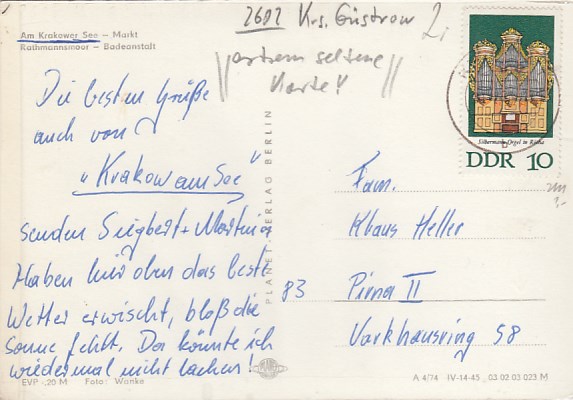 2602 Krs. Güstrow 2,
Am Krakower See — Markt
Rathmannsmoor — Badeanstalt
extrem seltene
Karte!
Die besten Grüße
auch von
„Krakow am See"
senden Siegbert + Martina
Haben hier oben das beste
Wetter erwischt, bloß die
Sonne fehlt. Da könnte ich
wiedermal nicht lachen!
EVP -.20 M Foto: Wanke
PLANET-VERLAG BERLIN
Silbermann-Orgel in Rötha
DDR 10
Fam.
Klaus Heller
83 Pirna II
Varkhausring 58
A 4/74 IV-14-45 03 02 03 023 M